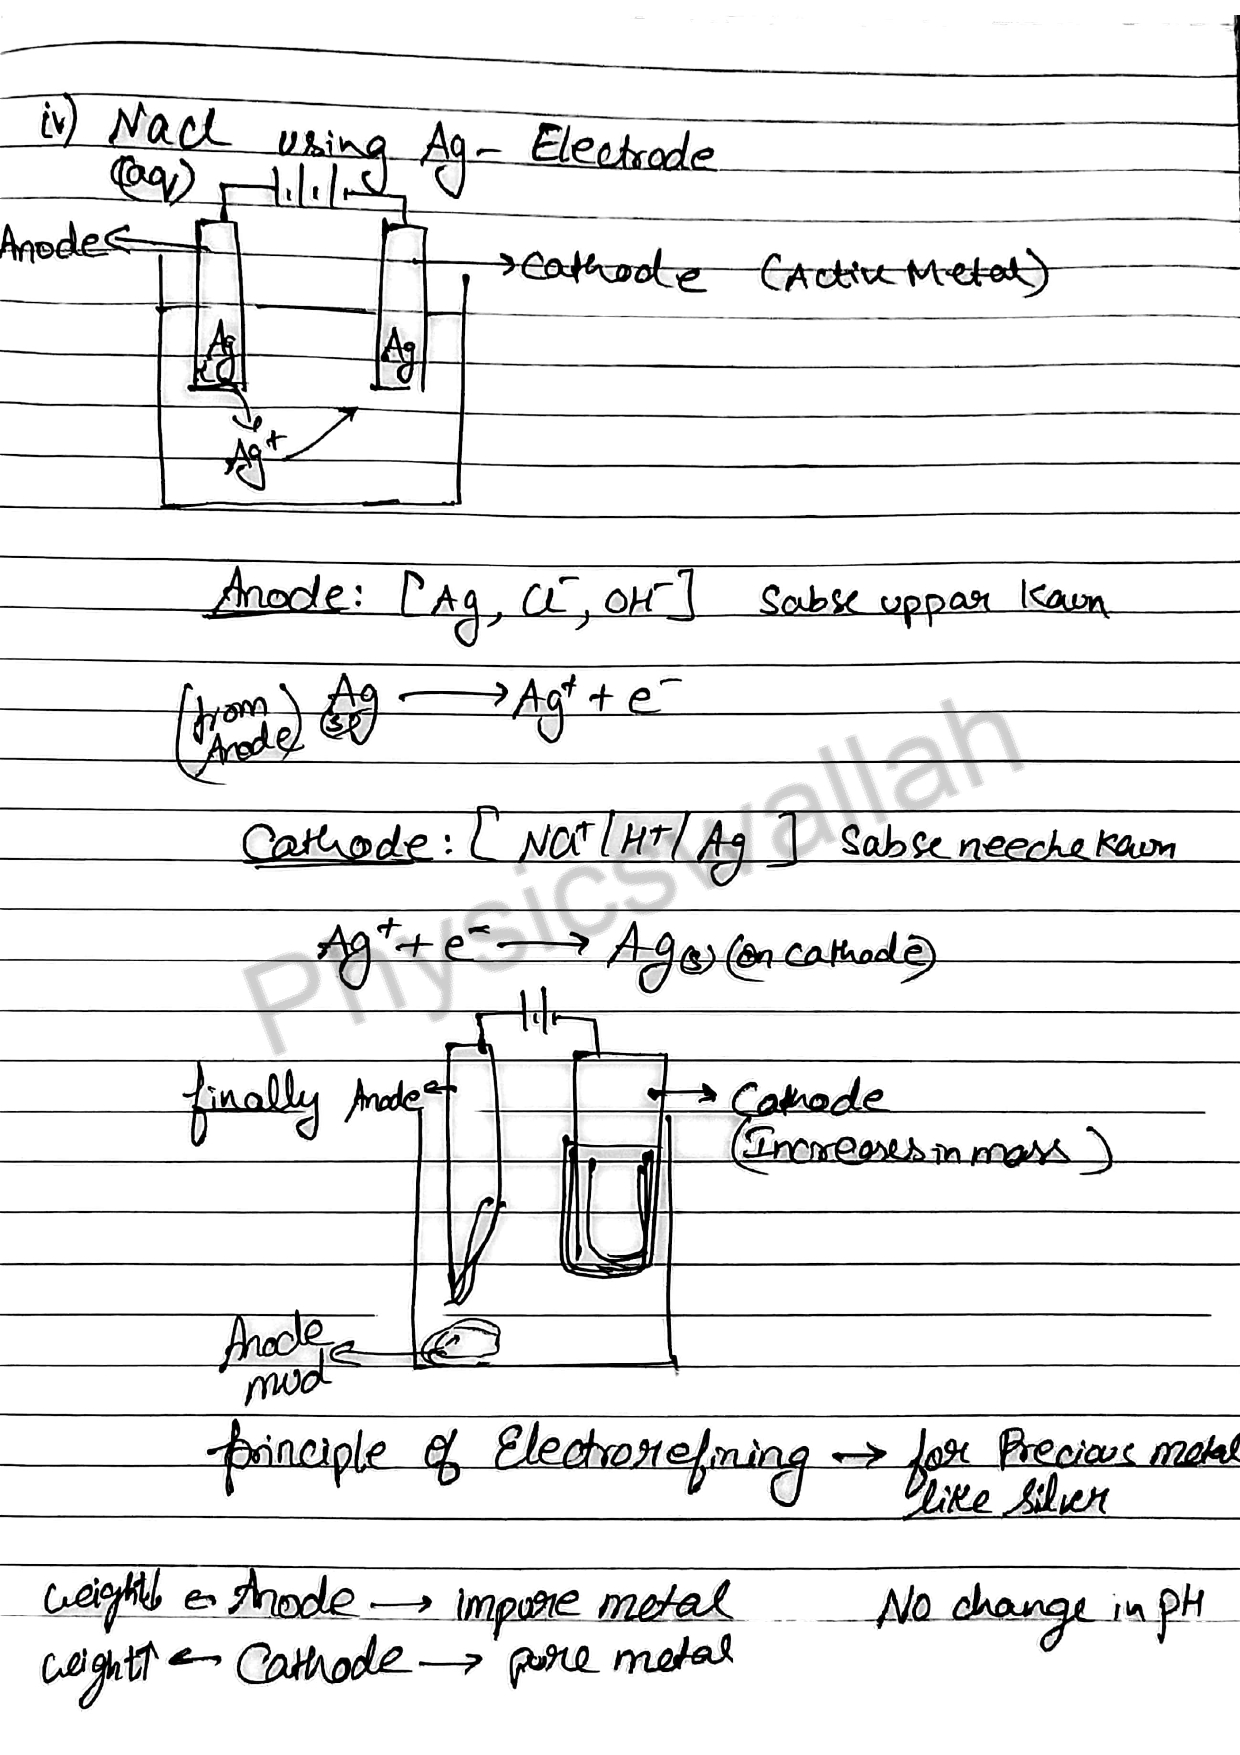 iv) NaCl using Ag - Electrode
(aq)
Anode
Cathode (Active Metal)
Ag
Ag
Ag⁺
Anode: [Ag, Cl⁻, OH⁻] Sabse uppar Kaun
(from Anode) Ag(s) → Ag⁺ + e⁻
Cathode: [Na⁺/H⁺/Ag] Sabse neeche Kaun
Ag⁺ + e⁻ → Ag(s) (on cathode)
finally Anode
Cathode
(Increases in mass)
Anode
mud
principle of Electrorefining → for Precious metal
like silver
weight↓ ← Anode → impure metal No change in pH
weight↑ ← Cathode → pure metal
Physicswallah